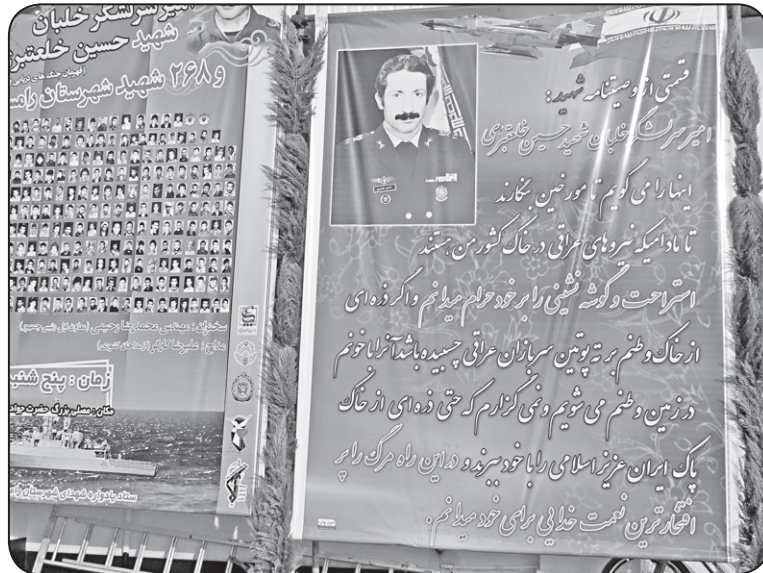 امیر سرلشکر خلبان
شهید حسین خلعتبری
و ۲۶۸ شهید شهرستان رامسر
سخنران : مهندس محمدرضا رحیمی (معاون اول رئیس جمهور)
مداح :
زمان : پنج شنبه
مکان : مصلی بزرگ حضرت جواد
ستاد یادواره شهدای شهرستان
قسمتی از وصیتنامه شهید :
امیر سرلشکر خلبان شهید حسین خلعتبری
اینها را می گویم تا مورخین بنگارند
تا مادامیکه نیروهای عراقی در خاک کشور من هستند
استراحت و گوشه نشینی را بر خود حرام میدانم و اگر ذره ای
از خاک وطنم بر ته پوتین سربازان عراقی چسبیده باشد آنرا با خونم
در زمین وطنم می شویم و نمی گزارم که حتی ذره ای از خاک
پاک ایران عزیز اسلامی را با خود ببرند و در این راه مرگ را پر
افتخارترین نعمت خدایی برای خود میدانم .